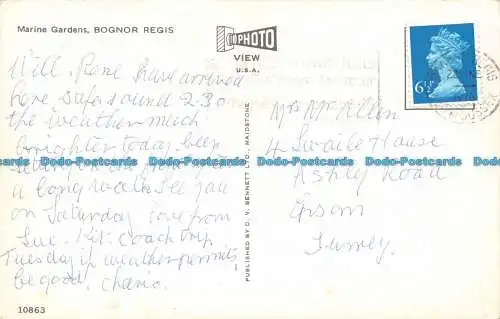 Marine Gardens, BOGNOR REGIS
PHOTO
VIEW
U.S.A.
6½P
Will. Rene have arrived
here safe sound 2.30
the weather much
brighter today been
sitting on the
a long walk see you
on Saturday love from
Coach trip
Tuesday if weather permits
be good. cheerio.
Mrs M Allen
4 Swaile House
Ashley Road
Epsom
Surrey.
PUBLISHED BY D. V. BENNETT LTD., MAIDSTONE
10863
Dodo-Postcards Dodo-Postcards Dodo-Postcards Dodo-Postcards